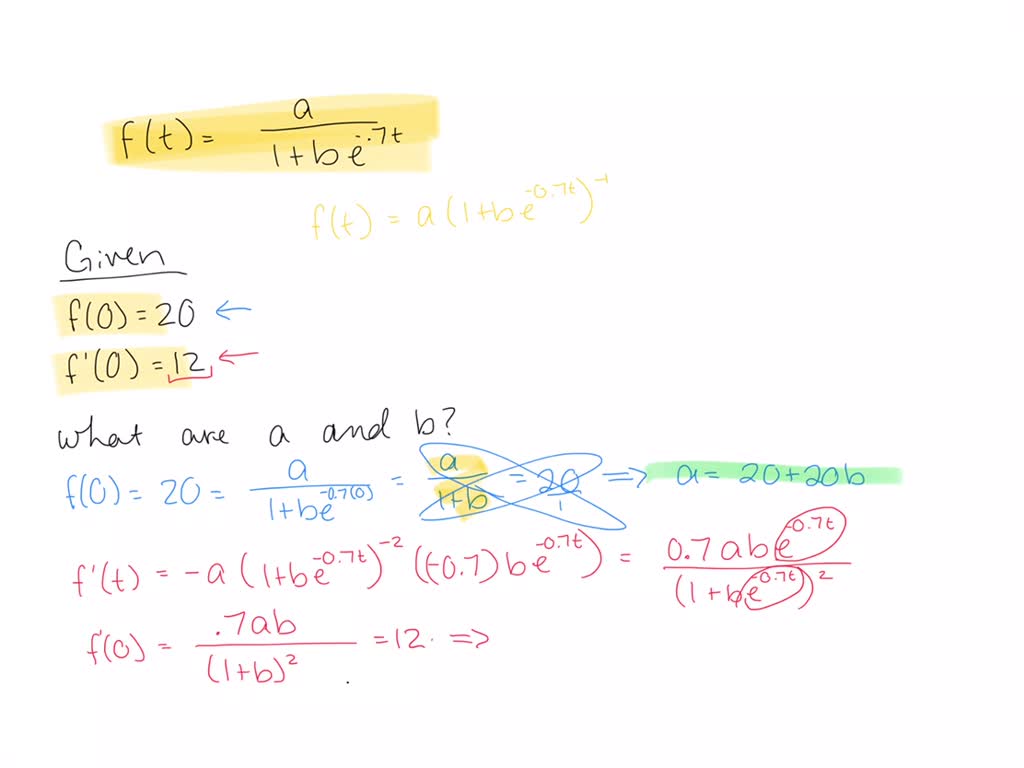 f(t) = a / (1+be^-.7t)
f(t) = a(1+be^-0.7t)^-1
Given
f(0) = 20 ←
f'(0) = 12 ←
what are a and b?
f(0) = 20 = a / (1+be^-0.7(0)) = a / (1+b) = 20 / 1 ⇒ a = 20+20b
f'(t) = -a (1+be^-0.7t)^-2 ((-0.7)be^-0.7t) = 0.7abe^-0.7t / (1+be^-0.7t)^2
f'(0) = .7ab / (1+b)^2 = 12. ⇒